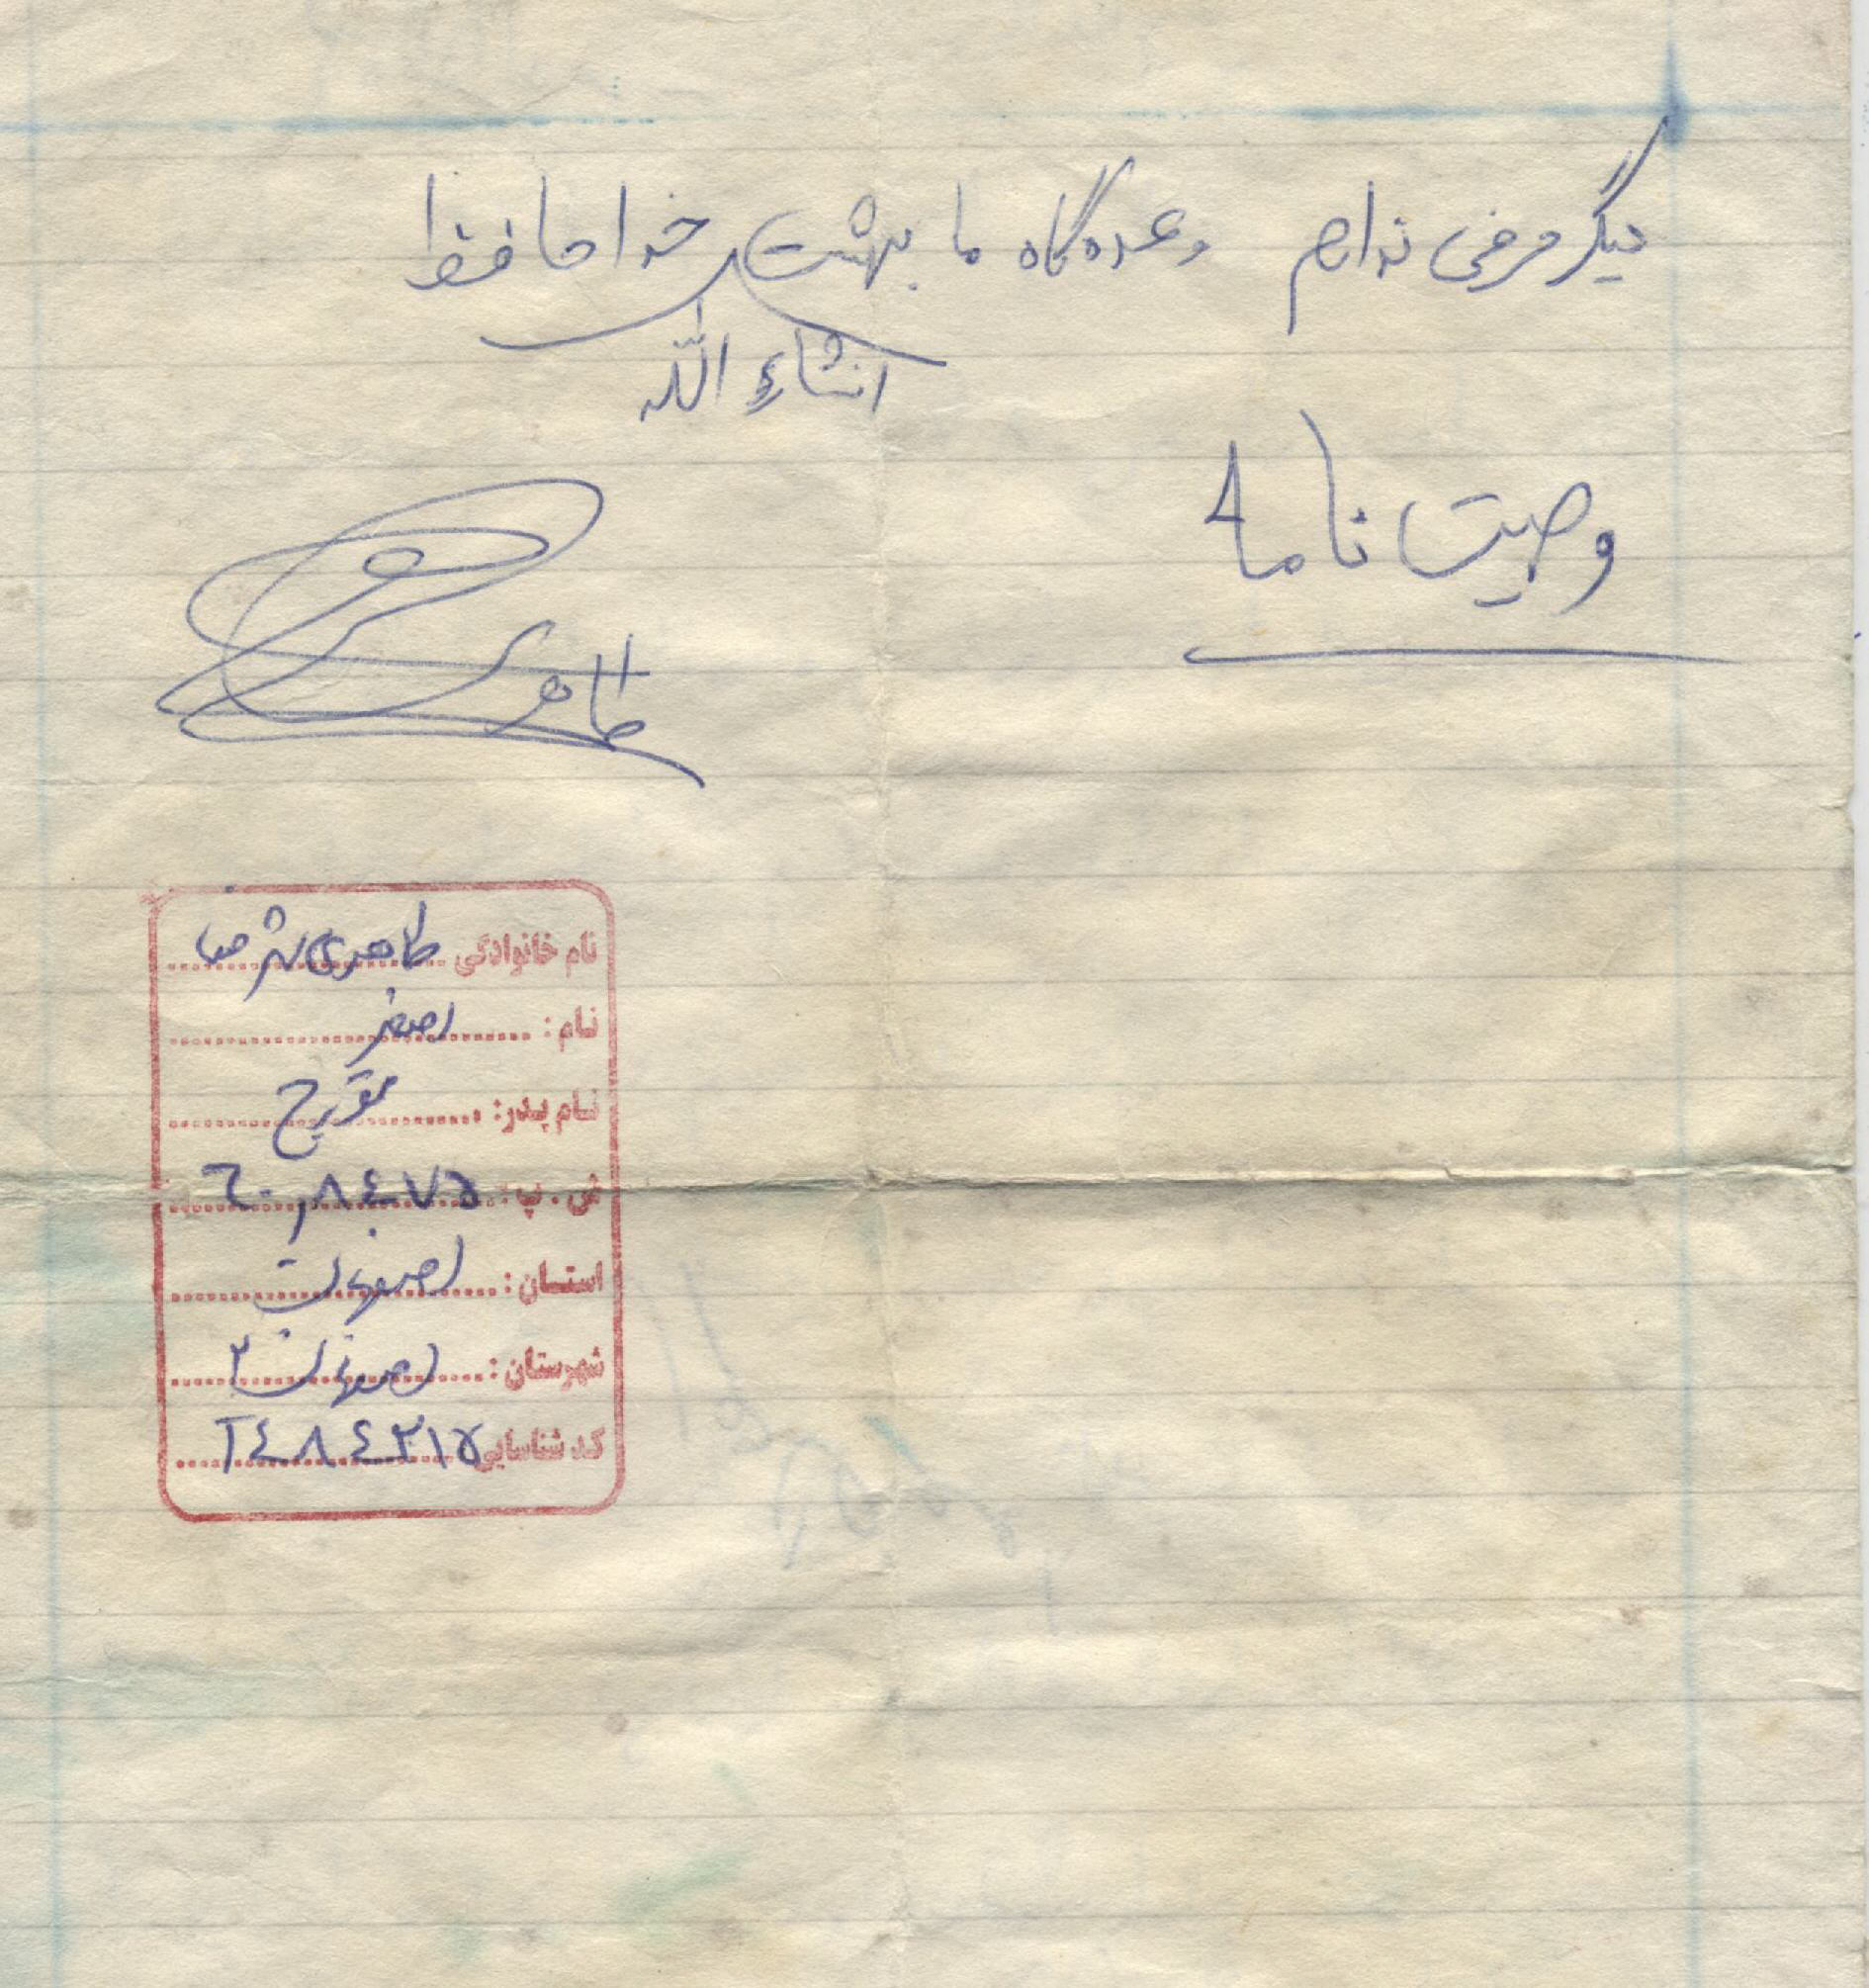 دیگر عرضی ندارم وعده گاه ما بهشت خداحافظ
انشاءالله
وصیت نامه
طاهری
نام خانوادگی طاهری شهرضا
نام: اصغر
نام پدر:
ش . پ: ٦٠٨٤٧٥
استان: اصفهان
شهرستان: اصفهان ۲
کد شناسایی ٢٤٨٤٢١٥